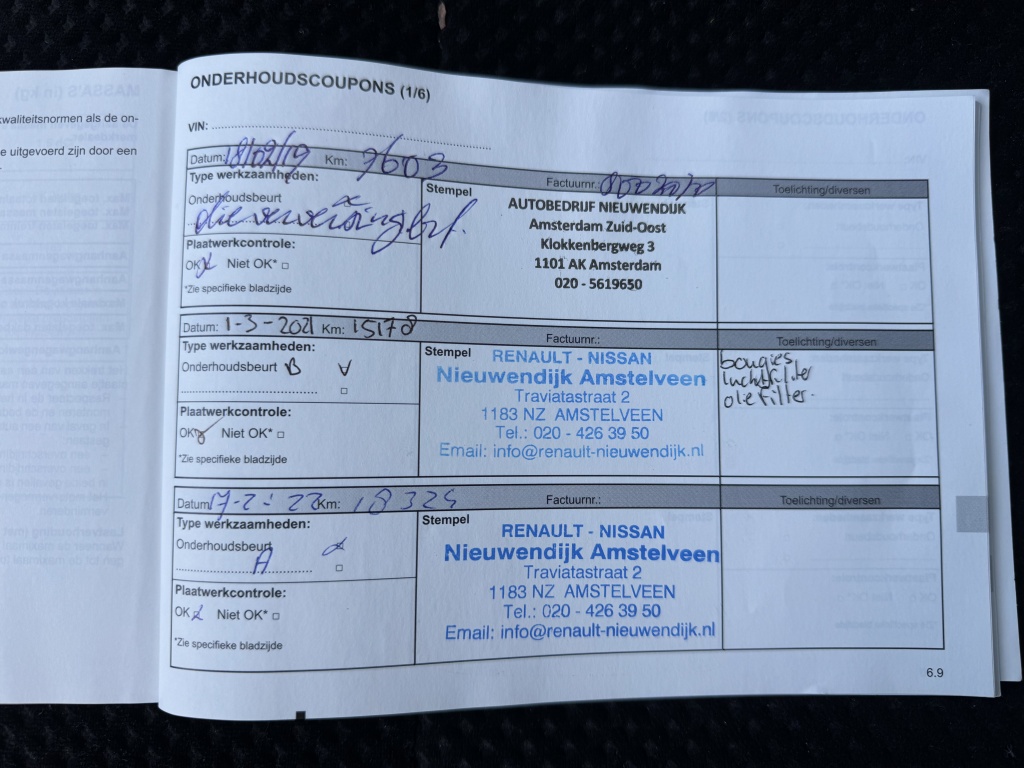 kwaliteitsnormen als de on-
e uitgevoerd zijn door een
ONDERHOUDSCOUPONS (1/6)
VIN:
Datum: 18/02/19 Km: 7603 Factuurnr.: Toelichting/diversen
Type werkzaamheden:
Onderhoudsbeurt
olieverversing brt.
Plaatwerkcontrole:
OK Niet OK*
*Zie specifieke bladzijde
Stempel
AUTOBEDRIJF NIEUWENDIJK
Amsterdam Zuid-Oost
Klokkenbergweg 3
1101 AK Amsterdam
020 - 5619650
Datum: 1-3-2021 Km: 15178 Factuurnr.: Toelichting/diversen
Type werkzaamheden:
Onderhoudsbeurt B
Plaatwerkcontrole:
OK Niet OK*
*Zie specifieke bladzijde
Stempel
RENAULT - NISSAN
Nieuwendijk Amstelveen
Traviatastraat 2
1183 NZ AMSTELVEEN
Tel.: 020 - 426 39 50
Email: info@renault-nieuwendijk.nl
bougies,
luchtfilter
oliefilter.
Datum: 17-2-22 Km: 18325 Factuurnr.: Toelichting/diversen
Type werkzaamheden:
Onderhoudsbeurt
A
Plaatwerkcontrole:
OK Niet OK*
*Zie specifieke bladzijde
Stempel
RENAULT - NISSAN
Nieuwendijk Amstelveen
Traviatastraat 2
1183 NZ AMSTELVEEN
Tel.: 020 - 426 39 50
Email: info@renault-nieuwendijk.nl
6.9